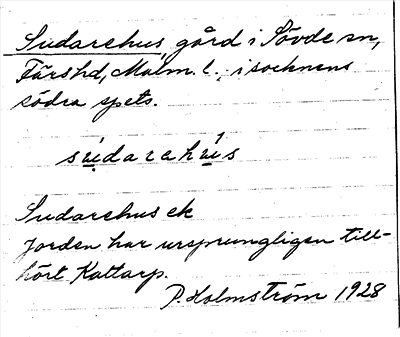 Sudarehus, gård i Sövde sn,
Färs hd, Malm. l.; i socknens
södra spets.
sudarahus
Sudarehus ek
Jorden har ursprungligen till-
hört Kattarp.
P. Holmström 1928